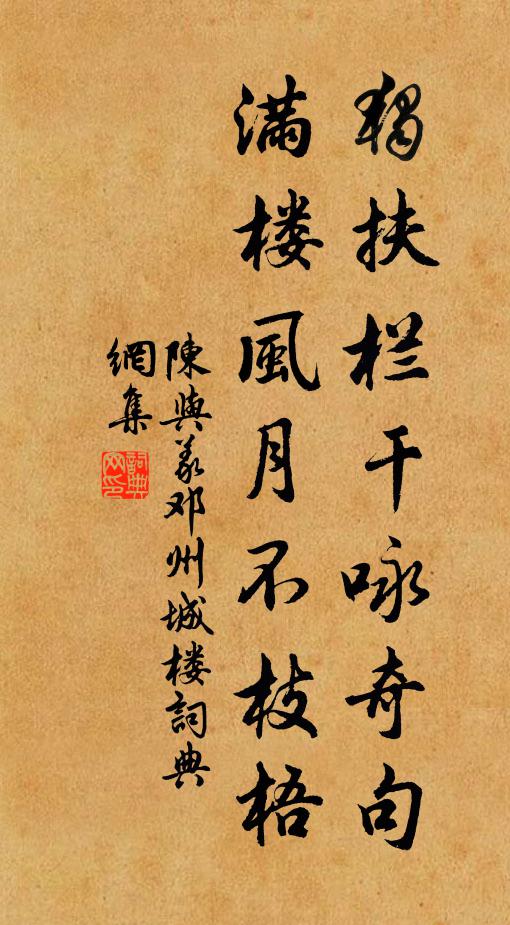 獨扶栏干咏奇句
满楼風月不枝梧
陳與義邓州城楼詞典
網集
詞典網印